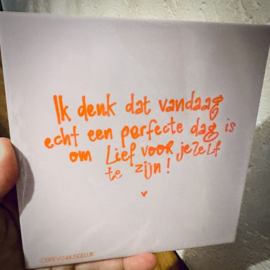 Ik denk dat vandaag
echt een perfecte dag is
om Lief voor jezelf
te zijn!